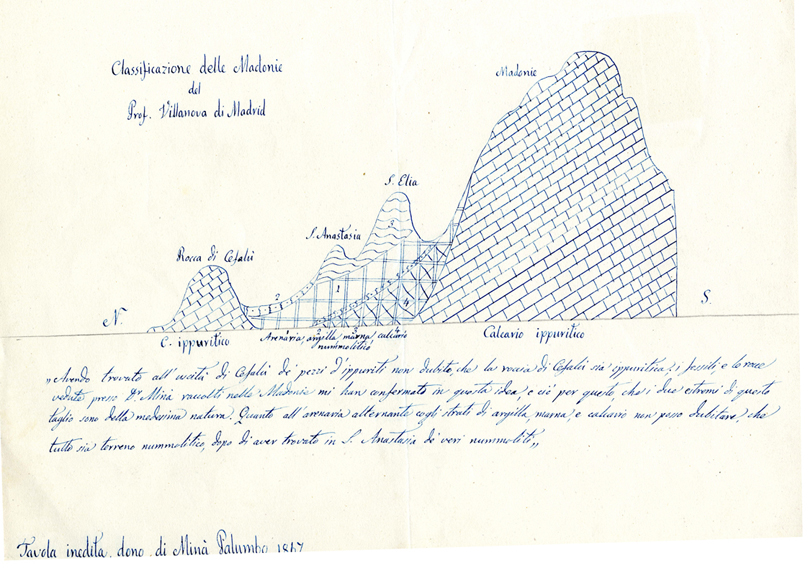 Classificazione delle Madonie
del
Prof. Villanova di Madrid
Madonie
S. Elia
S. Anastasia
Rocca di Cefalù
2
2
1
4
N.
S.
C. ippuritico
Arenaria, argilla, marna, calcario
nummolitico
Calcario ippuritico
„Avendo trovato all'uscita di Cefalù de' pezzi d'ippuriti non dubito, che la roccia di Cefalù sia ippuritica; i fossili, e le rocce
vedute presso Dr Minà raccolti nelle Madonie mi han confermato in questa idea, e ciò per questo, che i due estremi di questo
taglio sono della medesima natura. Quanto all'arenaria alternante cogli strati di argilla, marna, e calcario non posso dubitare, che
tutto sia terreno nummolitico, dopo di aver trovato in S. Anastasia de' veri nummoliti„
Tavola inedita, dono di Minà Palumbo 1867